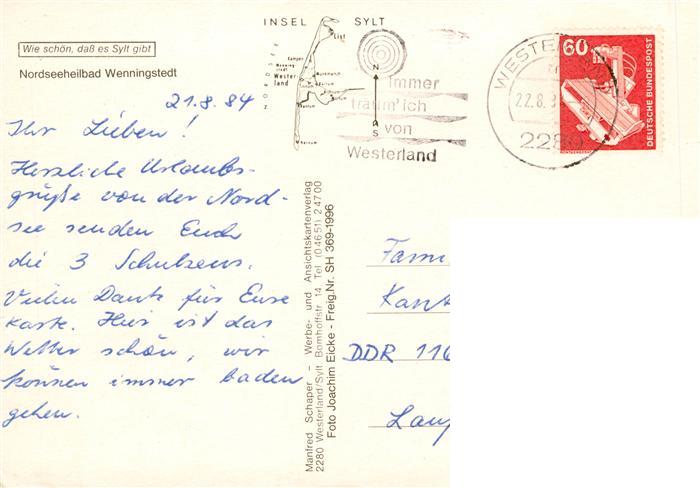 INSEL SYLT
Wie schön, daß es Sylt gibt
Nordseeheilbad Wenningstedt
21.8.84
Ihr Lieben!
Herzliche Urlaubs-
grüße von der Nord-
see senden Euch
die 3 Schulzens.
Vielen Dank für Eure
Karte. Hier ist das
Wetter schön, wir
können immer baden
gehen.
List
Kampen
Wenning-
stedt
Wester-
land
N
S
Immer
träum' ich
von
Westerland
WESTE
22.8.8
2280
60
DEUTSCHE BUNDESPOST
Manfred Schaper – Werbe- und Ansichtskartenverlag
2280 Westerland/Sylt Bomhoffstr. 14 Tel. (0 46 51) 2 47 00
Foto Joachim Eicke - Freig.Nr. SH 369-1996
Fam
Kant
DDR 116